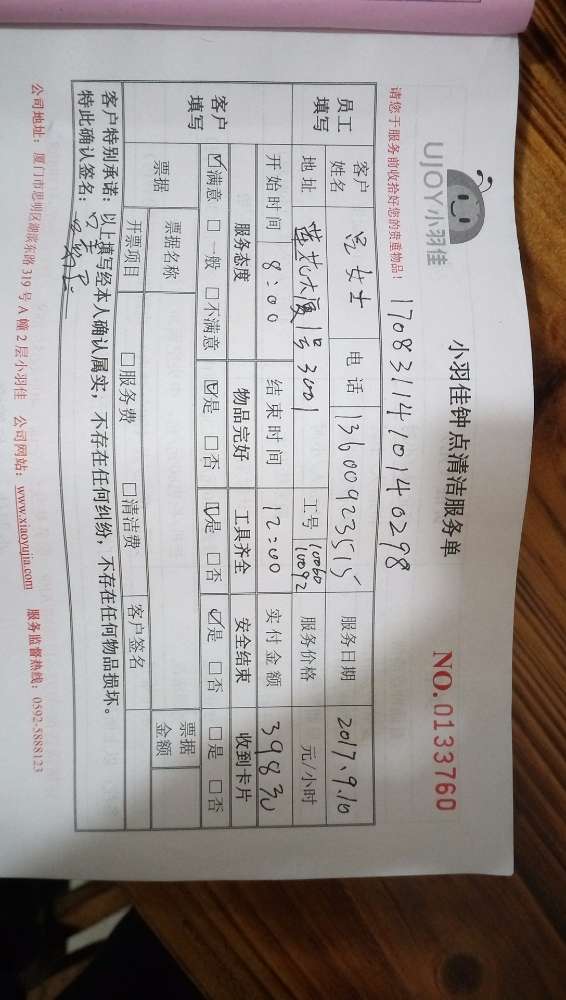 UJOY小羽佳
小羽佳钟点清洁服务单
NO.0133760
请您于服务前收拾好您的贵重物品！
17083114101140298
员工填写 客户姓名 女士 电话 13600923515 服务日期 2017.9.10
地址 大厦1号3001 工号 10060 10092 服务价格 元/小时
开始时间 8:00 结束时间 12:00 实付金额 398元
客户填写 服务态度 物品完好 工具齐全 安全结束 收到卡片
☑满意 □一般 □不满意 ☑是 □否 ☑是 □否 ☑是 □否 □是 □否
票据 票据名称 票据金额
开票项目 □服务费 □清洁费 客户签名
客户特别承诺：以上填写经本人确认属实，不存在任何纠纷，不存在任何物品损坏。
特此确认签名：
公司地址：厦门市思明区湖滨东路319号A幢2层小羽佳 公司网站：www.xiaoyujia.com 服务监督热线：0592-5888123